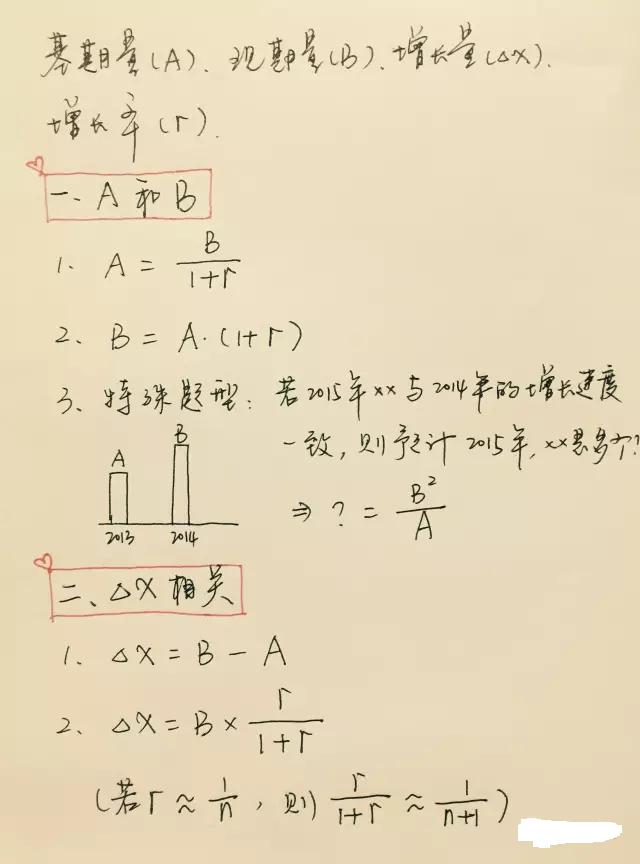 基期量(A)、现期量(B)、增长量(△x)、
增长率(r).
一、A 和 B
1. A = B/(1+r)
2. B = A·(1+r)
3、特殊题型: 若2015年xx与2014年的增长速度
一致, 则预计 2015年, xx是多少?
A B
2013 2014
⇒ ? = B²/A
二、△X 相关
1、 △X = B - A
2、 △X = B × r/(1+r)
(若 r ≈ 1/n , 则 r/(1+r) ≈ 1/(n+1) )